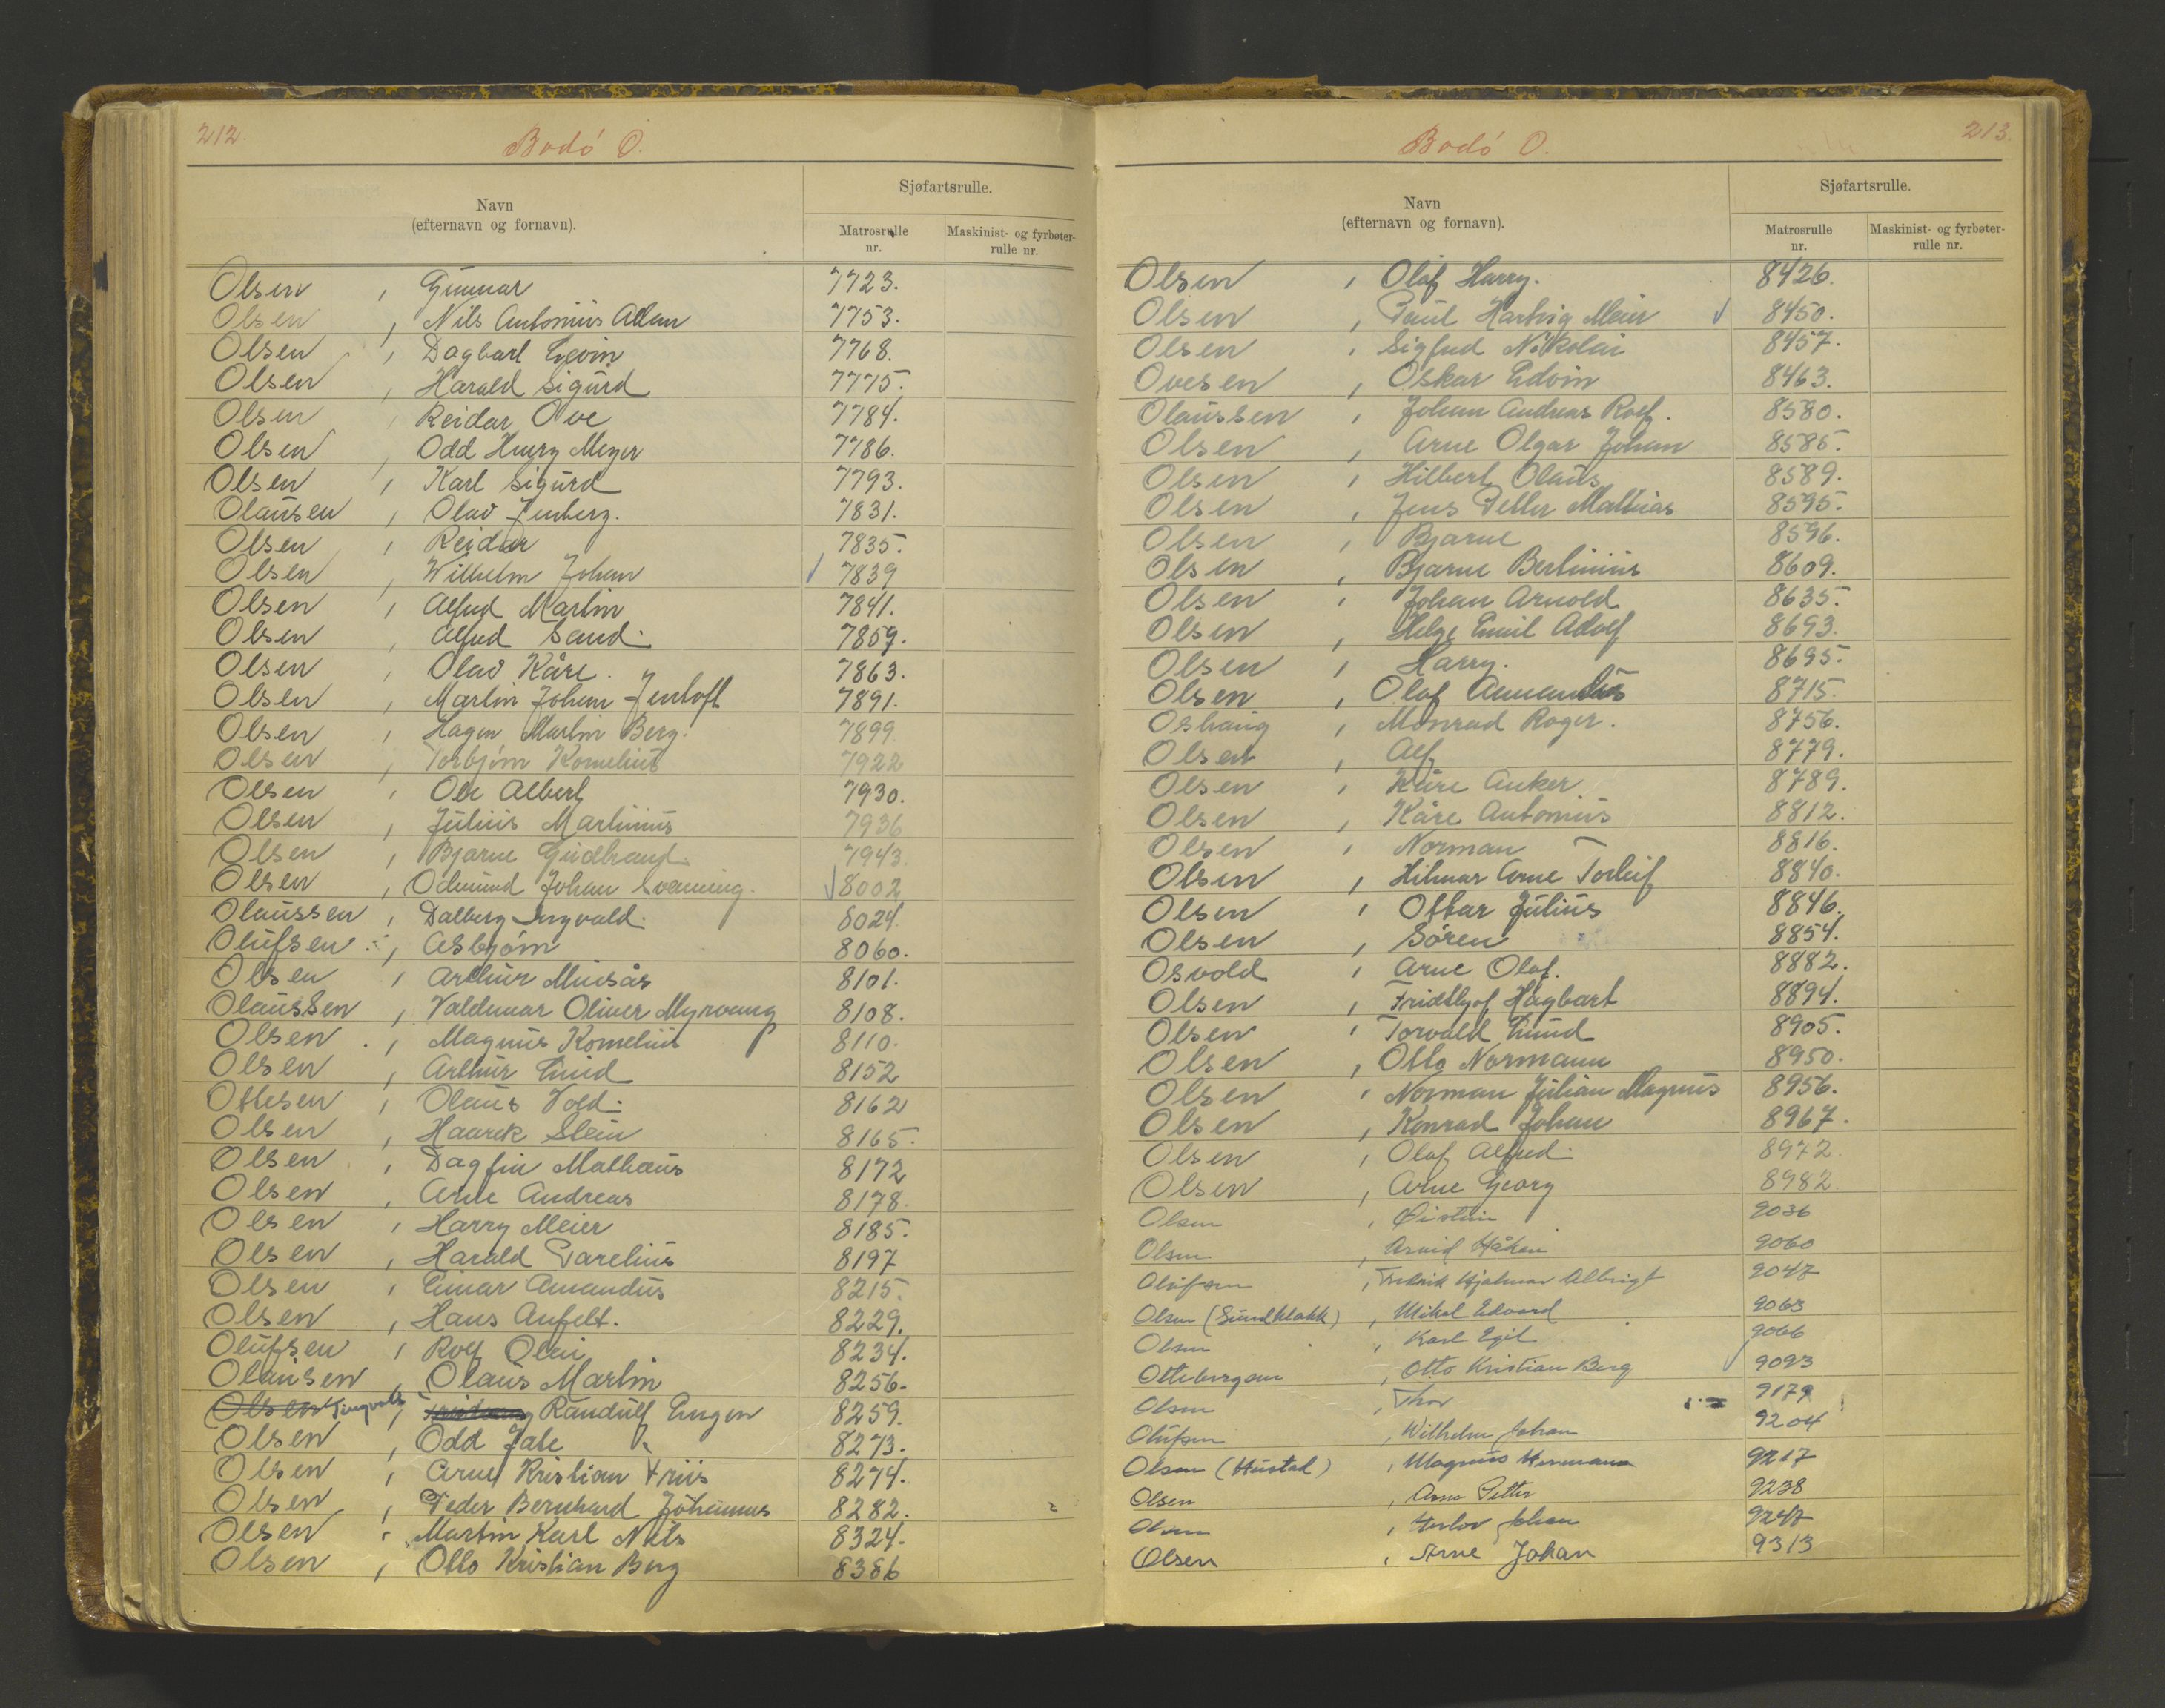 212.
Bodó O.
Navn
(efternavn og fornavn).
Sjøfartsrulle.
Matrosrulle
nr.
Maskinist- og fyrbøter-
rulle nr.
Olsen , Gunnar 7723.
Olsen , Nils Antonius Adan 7753.
Olsen , Dagbart Gevin 7768.
Olsen , Harald Sigurd 7775.
Olsen , Reidar Ove 7784.
Olsen , Odd Henry Meyer 7786.
Olsen , Karl Sigurd 7793.
Olausen , Olav Jenberg. 7831.
Olsen , Reidar 7835.
Olsen , Wilhelm Johan 7839
Olsen , Alfred Martin 7841.
Olsen , Alfred Sand. 7859.
Olsen , Olav Kåre. 7863.
Olsen , Martin Johan Jentoft 7891.
Olsen , Hagen Martin Berg. 7899.
Olsen , Torbjørn Kornelius 7922
Olsen , Ole Albert 7930.
Olsen , Julius Martinus 7936
Olsen , Bjarne Gudbrand. 7943.
Olsen , Odmund Johan Svenning. 8002
Olaussen , Dalberg Ingvald. 8024.
Olufsen , Asbjørn 8060.
Olsen , Arthur Misås 8101.
Olaussen , Valdemar Oliver Myrvang 8108.
Olsen , Magnus Kornelius 8110.
Olsen , Arthur Emid 8152
Ottesen , Olaus Vold. 8162
Olsen , Haarek Stein 8165.
Olsen , Dagfin Mathæus 8172
Olsen , Arne Andreas 8178.
Olsen , Harry Meier 8185.
Olsen , Harald Parelius 8197
Olsen , Einar Amandus 8215.
Olsen , Hans Anfelt. 8229.
Olufsen , Rolf Olai 8234.
Olausen , Olaus Martin 8256.
Olsen Tingvold , Randulf Engen 8259.
Olsen , Odd Jale 8273.
Olsen , Arne Kristian Friis 8274.
Olsen , Peder Bernhard Johannes 8282.
Olsen , Martin Karl Nils 8324.
Olsen , Otto Kristian Berg 8386
213.
Bodó O.
Navn
(efternavn og fornavn).
Sjøfartsrulle.
Matrosrulle
nr.
Maskinist- og fyrbøter-
rulle nr.
Olsen , Olaf Harry. 8426.
Olsen , Paul Hartvig Meier 8450.
Olsen , Sigfred Nikolai 8457.
Ovesen , Oskar Edvin 8463.
Olaussen , Johan Andreas Rolf. 8580.
Olsen , Arne Olgar Johan 8585.
Olsen , Hilbert Olaus 8589.
Olsen , Jens Petter Mathias 8595.
Olsen , Bjarne 8596.
Olsen , Bjarne Bertinius 8609.
Olsen , Johan Arnold 8635.
Olsen , Helge Emil Adolf 8693.
Olsen , Harry. 8695.
Olsen , Olaf Armandus 8715.
Oshaug , Monrad Roger. 8756.
Olsen , Alf 8779.
Olsen , Kåre Anker 8789.
Olsen , Kåre Antonius 8812.
Olsen , Norman 8816.
Olsen , Hilmar Arne Torleif 8840.
Olsen , Ottar Julius 8846.
Olsen , Sóren 8854.
Osvold , Arne Olaf. 8882.
Olsen , Fridtjof Hagbart 8894.
Olsen , Torvald Emid 8905.
Olsen , Otto Normann 8950.
Olsen , Norman Julian Magnus 8956.
Olsen , Konrad Johan 8967.
Olsen , Olaf Alfred. 8972.
Olsen , Arne Georg 8982.
Olsen , Øistein 9036
Olsen , Arvid Håkon 9060
Olufsen , Fredrik Hjalmar Albrigt 9047
Olsen (Sundklakk) , Mikal Edvard 9063
Olsen , Karl Egil 9066
Ottebergsen , Otto Kristian Berg 9093
Olsen , Thor 9179
Olufsen , Wilhelm Johan 9204
Olsen (Hustad) , Magnus Hermann 9217
Olsen , Arne Petter 9238
Olsen , Herlov Johan 9247
Olsen , Arne Johan 9313